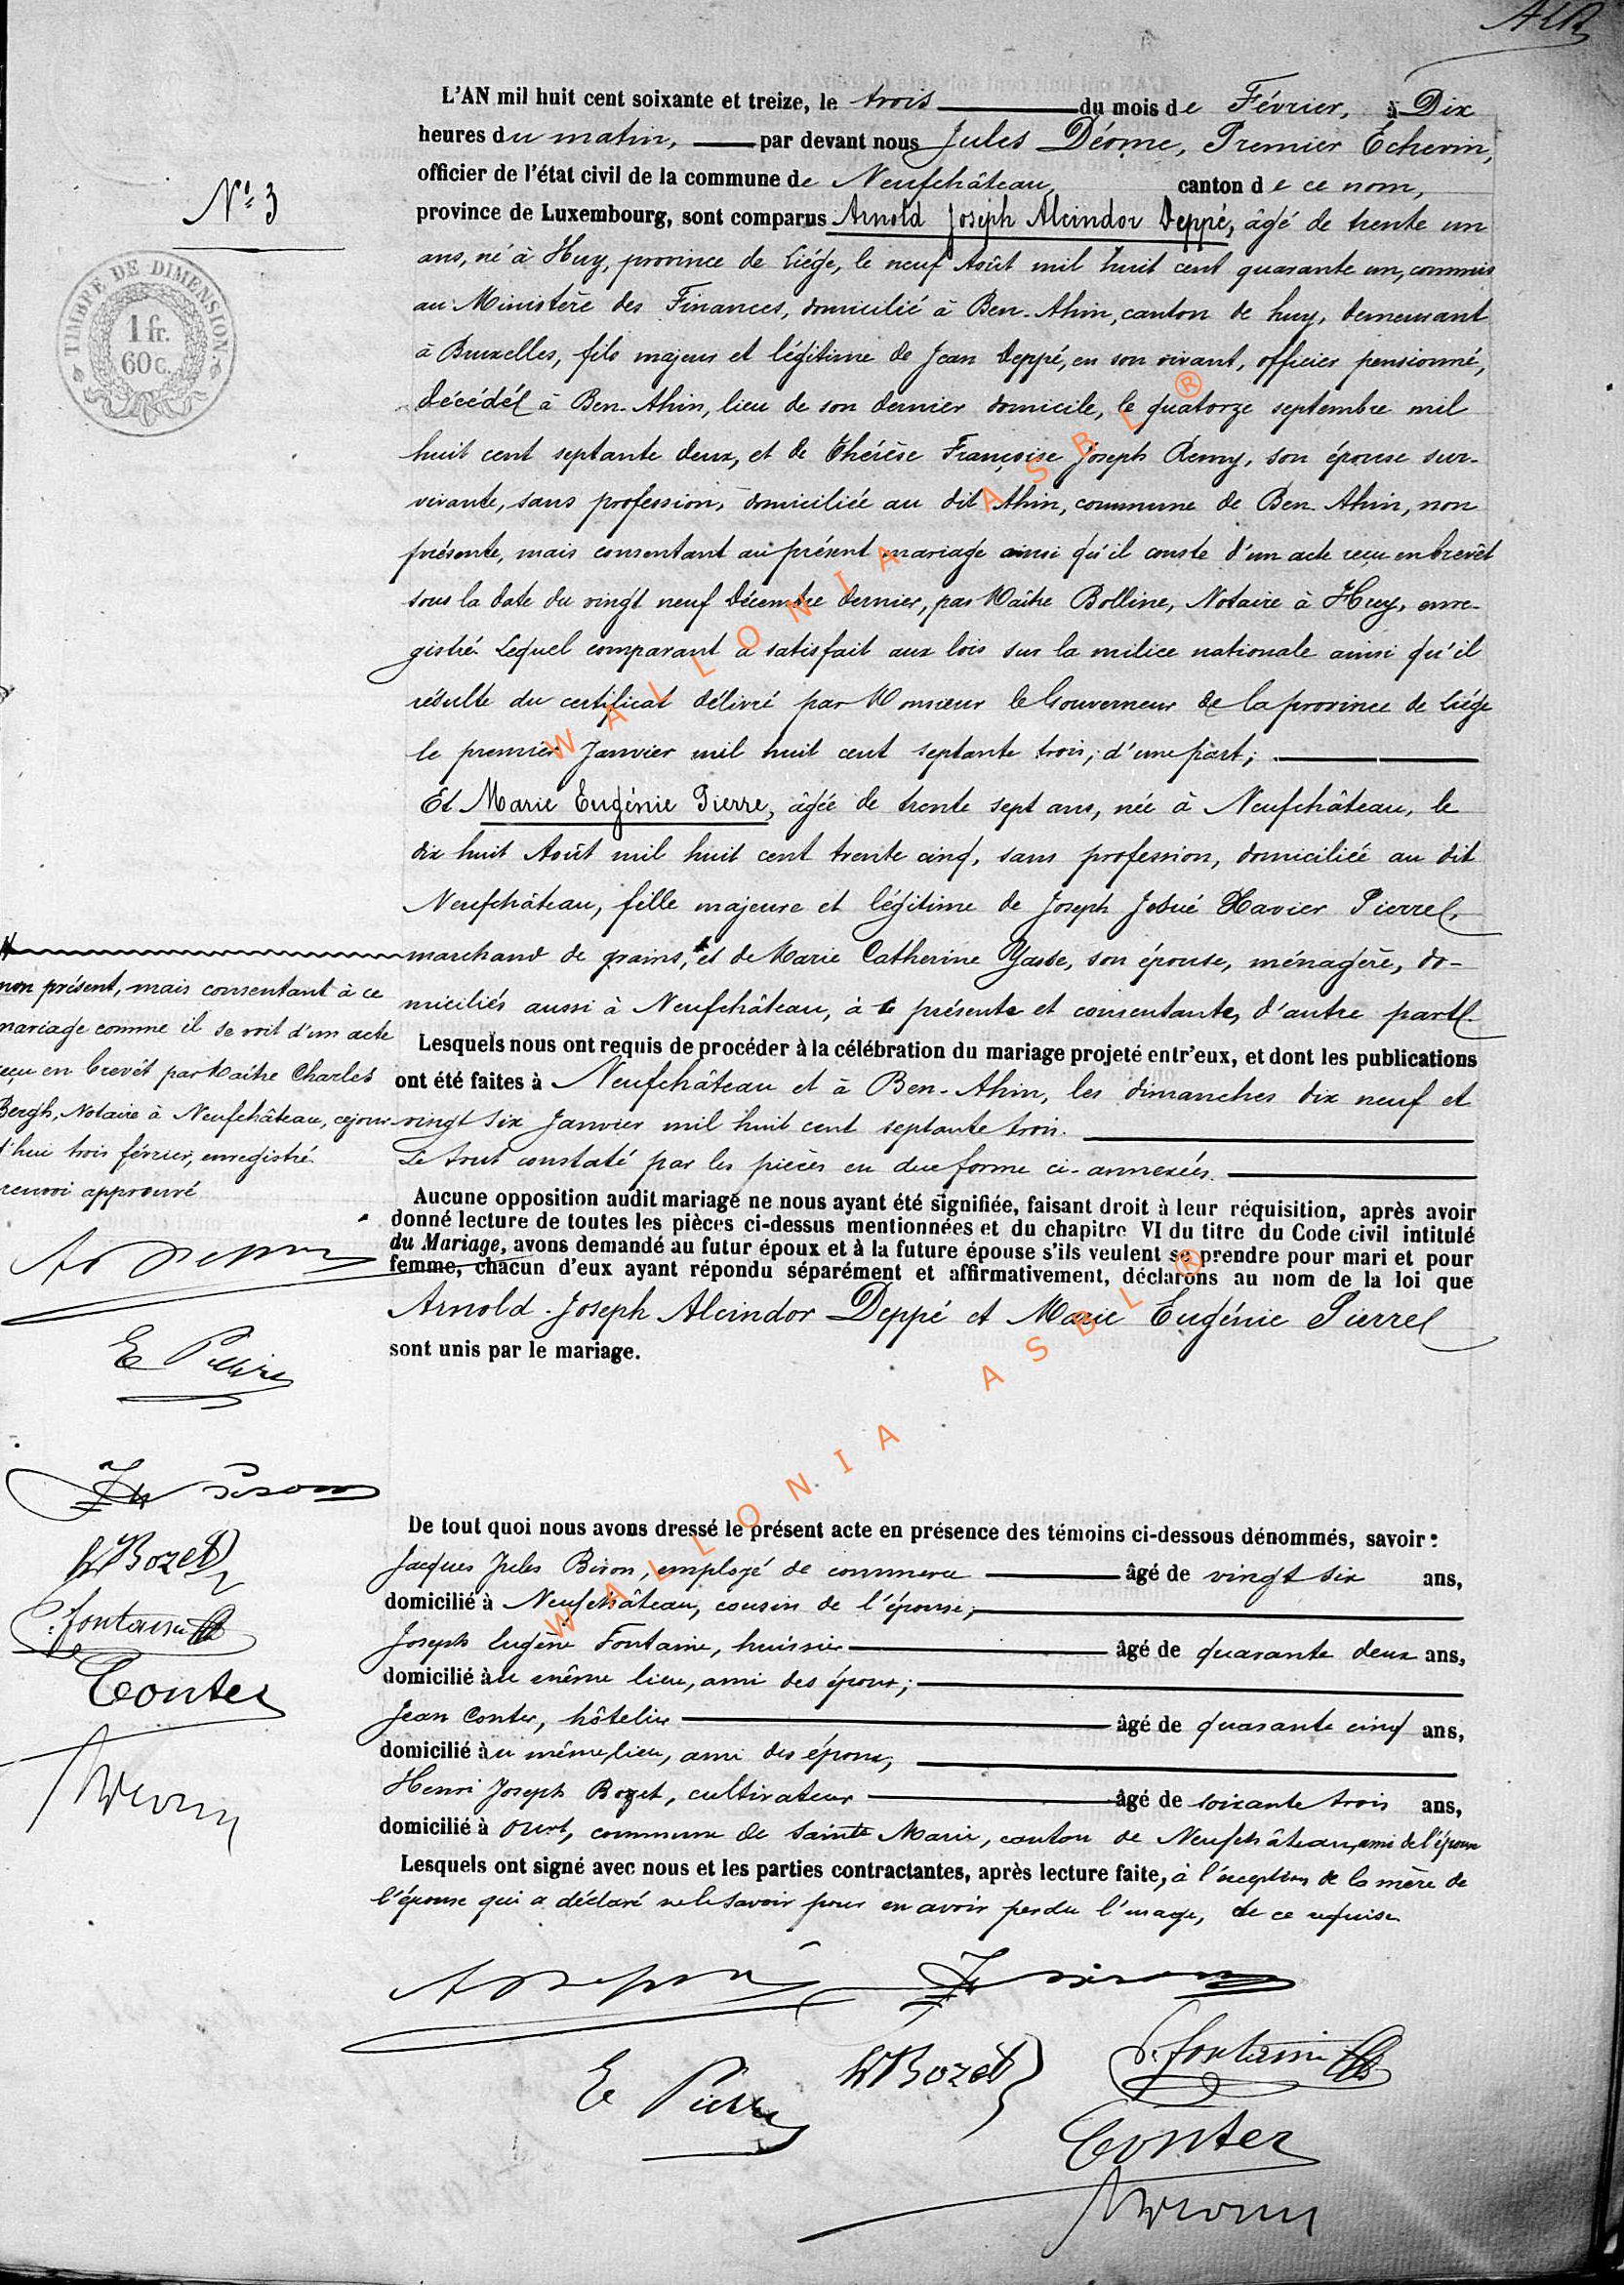 N° 3
TIMBRE DE DIMENSION.
1 fr.
60 c.
L'AN mil huit cent soixante et treize, le trois du mois de Février, à Dix
heures du matin, par devant nous Jules Déome, Premier Echevin,
officier de l'état civil de la commune de Neufchâteau, canton de ce nom,
province de Luxembourg, sont comparus Arnold Joseph Alcindor Deppé, âgé de trente un
ans, né à Huy, province de Liége, le neuf Août mil huit cent quarante un, commis
au Ministère des Finances, domicilié à Ben-Ahin, canton de huy, demeurant
à Bruxelles, fils majeur et légitime de Jean Deppé, en son vivant, officier pensionné,
décédé à Ben-Ahin, lieu de son dernier domicile, le quatorze septembre mil
huit cent septante deux, et de Thérèse Françoise Joseph Remy, son épouse sur-
vivante, sans profession, domiciliée au dit Ahin, commune de Ben-Ahin, non
présente, mais consentant au présent mariage ainsi qu'il conste d'un acte reçu en brevêt
sous la date du vingt neuf Décembre dernier, par Maître Bolline, Notaire à Huy, enre-
gistré. Lequel comparant a satisfait aux lois sur la milice nationale ainsi qu'il
résulte du certificat délivré par Monsieur le Gouverneur de la province de Liége
le premier Janvier mil huit cent septante trois, d'une part;
Et Marie Eugénie Pierre, âgée de trente sept ans, née à Neufchâteau, le
dix huit Août mil huit cent trente cinq, sans profession, domiciliée au dit
Neufchâteau, fille majeure et légitime de Joseph Josué Xavier Pierre,
marchand de grains, et de Marie Catherine, son épouse, ménagère, do-
miciliés aussi à Neufchâteau, à présente et consentante, d'autre part.
non présent, mais consentant à ce
mariage comme il se voit d'un acte
reçu en brevêt par Maître Charles
Bergh, Notaire à Neufchâteau, cejour-
d'hui trois février, enregistré.
renvoi approuvé
Lesquels nous ont requis de procéder à la célébration du mariage projeté entr'eux, et dont les publications
ont été faites à Neufchâteau et à Ben-Ahin, les dimanches dix neuf et
vingt six Janvier mil huit cent septante trois.
Le tout constaté par les pièces en due forme ci-annexées.
Aucune opposition audit mariage ne nous ayant été signifiée, faisant droit à leur réquisition, après avoir
donné lecture de toutes les pièces ci-dessus mentionnées et du chapitre VI du titre du Code civil intitulé
du Mariage, avons demandé au futur époux et à la future épouse s'ils veulent se prendre pour mari et pour
femme, chacun d'eux ayant répondu séparément et affirmativement, déclarons au nom de la loi que
Arnold-Joseph Alcindor Deppé et Marie Eugénie Pierre
sont unis par le mariage.
E Pierre
Bozet
fontaine
Conter
De tout quoi nous avons dressé le présent acte en présence des témoins ci-dessous dénommés, savoir :
Jacques Jules Biron, employé de commerce âgé de vingt six ans,
domicilié à Neufchâteau, cousin de l'épouse,
Joseph Eugène Fontaine, huissier âgé de quarante deux ans,
domicilié au même lieu, ami des époux;
Jean Conter, hôtelier âgé de quarante cinq ans,
domicilié au même lieu, ami des époux,
Henri Joseph Bozet, cultivateur âgé de soixante trois ans,
domicilié à Ourt, commune de Sainte Marie, canton de Neufchâteau, ami de l'épouse
Lesquels ont signé avec nous et les parties contractantes, après lecture faite, à l'exception de la mère de
l'épouse qui a déclaré ne le savoir pour en avoir perdu l'usage, de ce requise.
A Deppé
E Pierre
Bozet
fontaine
Conter
WALLONIA ASBL ®
WALLONIA ASBL ®